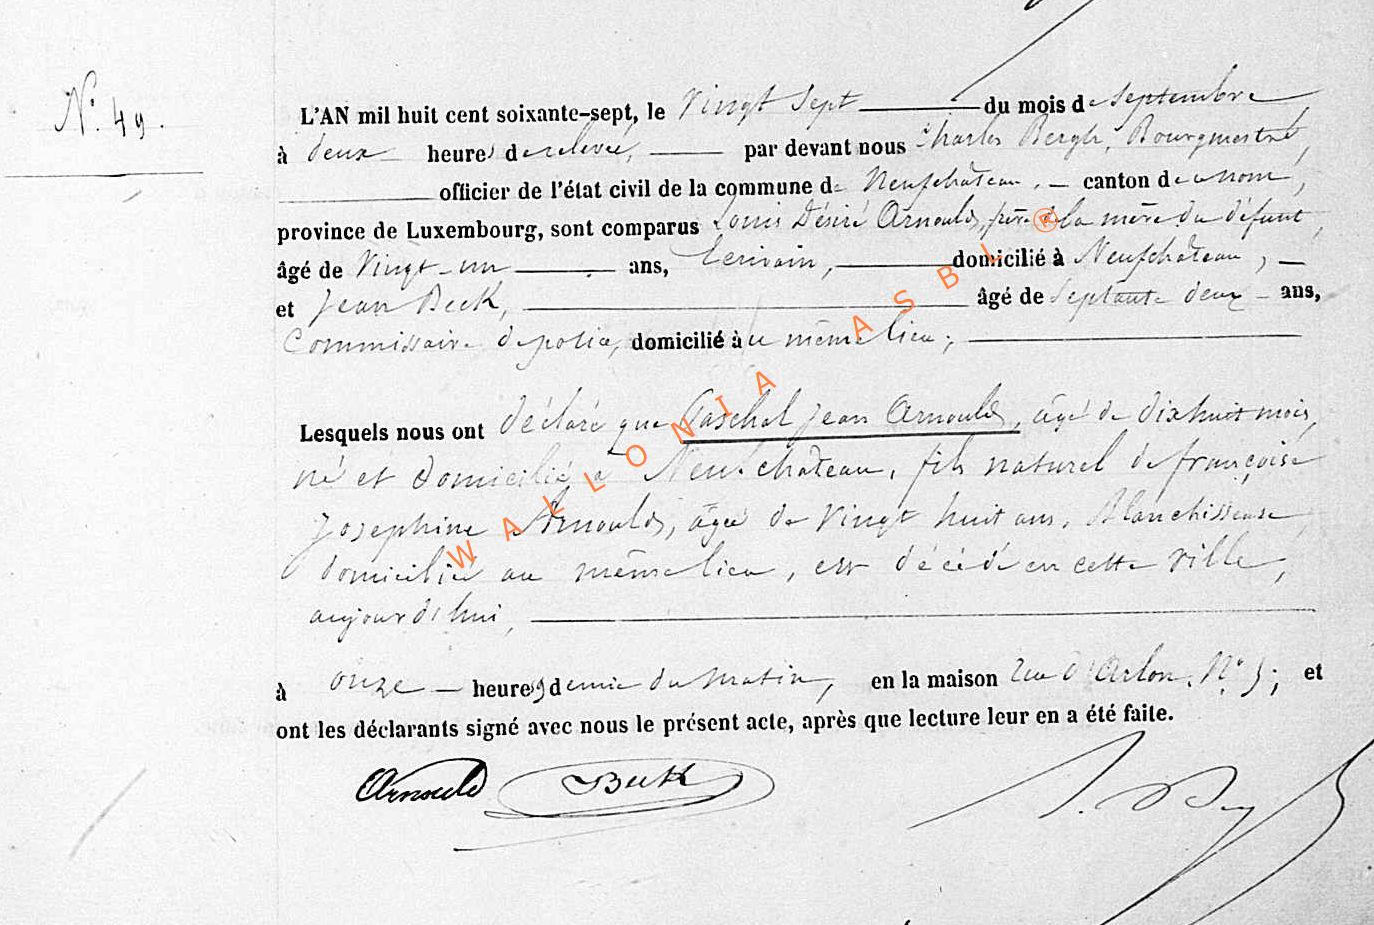 N° 49.
L'AN mil huit cent soixante-sept, le Vingt Sept du mois de Septembre,
à deux heures de relevée, par devant nous Charles Bergh, Bourgmestre,
officier de l'état civil de la commune de Neufchâteau, canton de ce nom,
province de Luxembourg, sont comparus Louis Désiré Arnould, frère de la mère du défunt,
âgé de Vingt-un ans, Ecrivain, domicilié à Neufchâteau,
et Jean Beck, âgé de Septante deux ans,
Commissaire de police, domicilié au même lieu;
Lesquels nous ont déclaré que Paschal Jean Arnould, âgé de dix huit mois,
né et domicilié à Neufchâteau, fils naturel de françoise
Josephine Arnould, âgée de Vingt huit ans, Blanchisseuse,
domiciliée au même lieu, est décédé en cette ville,
aujourd'hui,
à onze heures & demie du matin, en la maison rue d'Arlon, N° 9; et
ont les déclarants signé avec nous le présent acte, après que lecture leur en a été faite.
Arnould Beck
WALLONIA ASBL ®